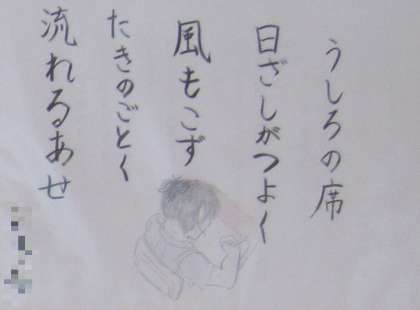 うしろの席
日ざしがつよく
風もこず
たきのごとく
流れるあせ